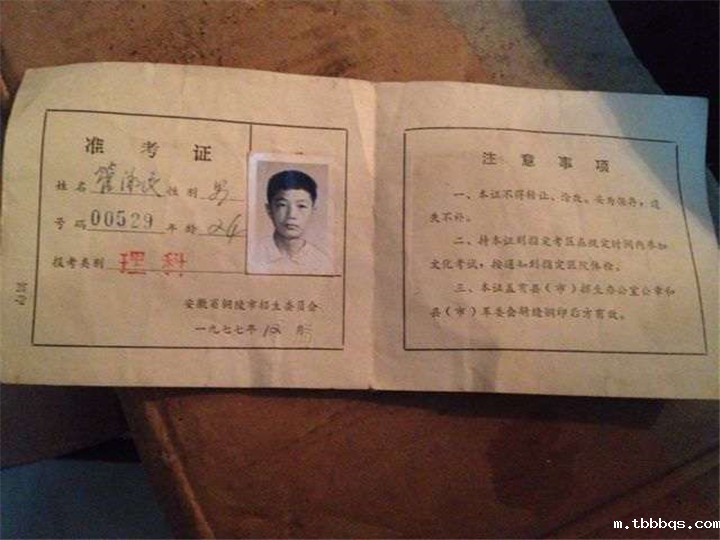 准考证
姓名 性别 男
号码 00529 年龄 24
报考类别 理科
安徽省铜陵市招生委员会
一九七七年12月
注意事项
一、本证不得转让、涂改。妥为保存，遗
失不补。
二、持本证到指定考区在规定时间内参加
文化考试，按通知到指定医院体检。
三、本证盖有县（市）招生办公室公章和
县（市）革委会骑缝钢印后方有效。
m.tbbbqs.com